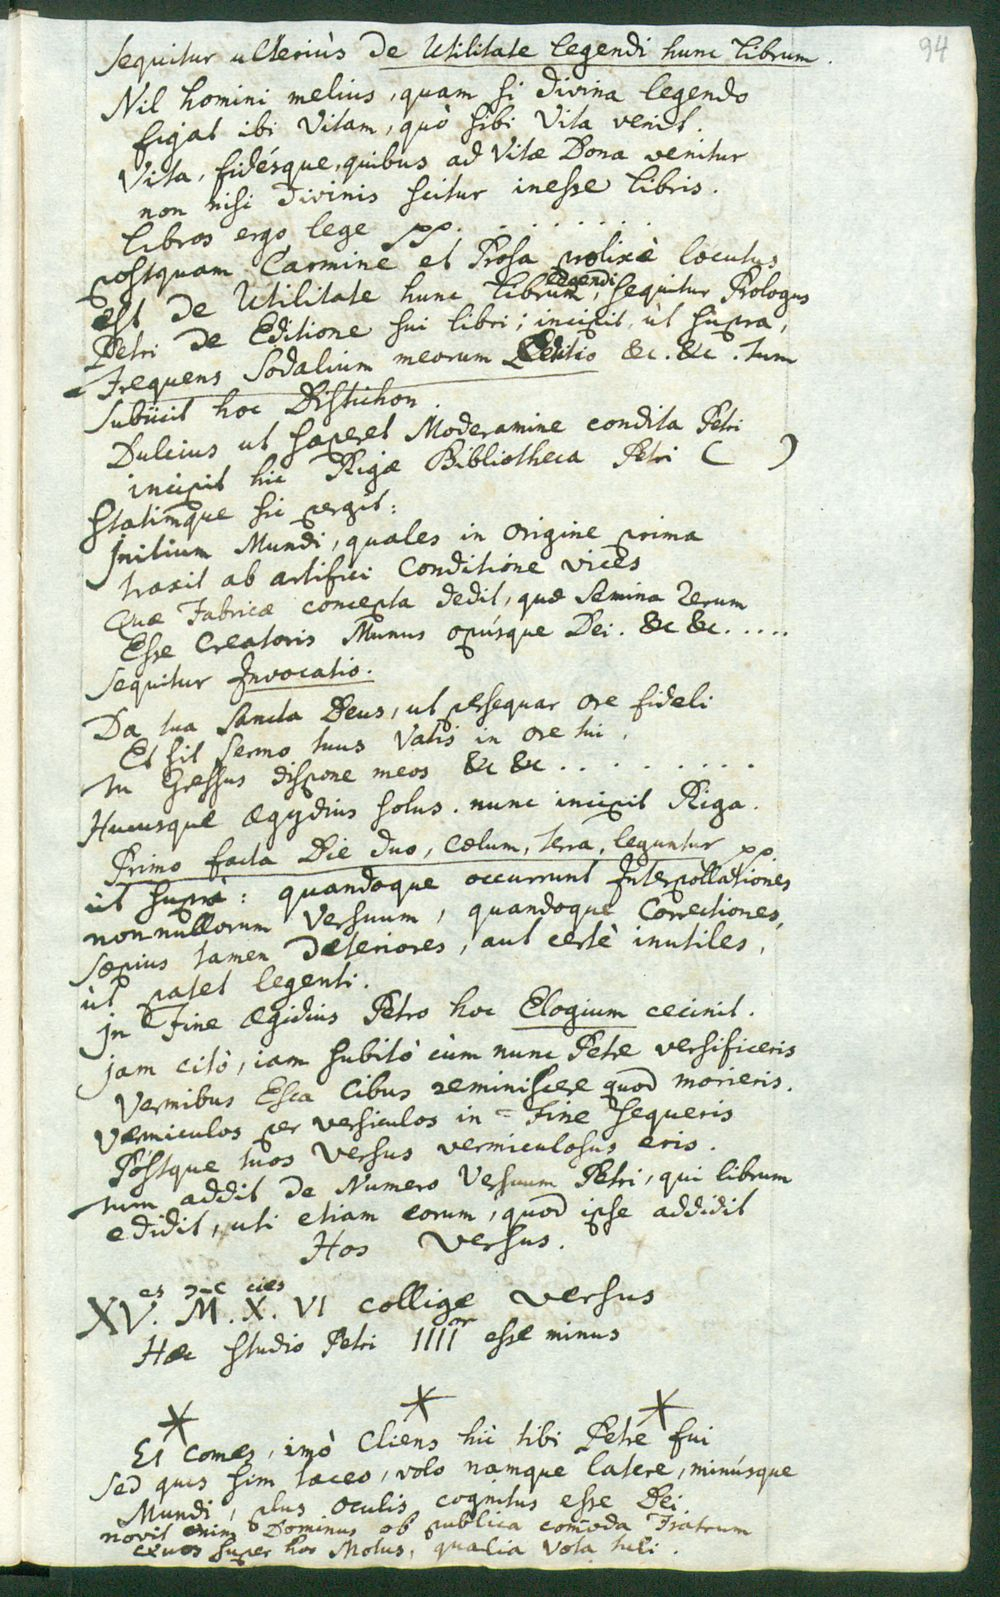 94
Sequitur ulteriùs De Utilitate legendi hunc librum.
Nil homini melius, quam si Divina legendo
figat ibi Vitam, quò sibi Vita venit.
Vita, fidésque, quibus ad Vitæ Dona venitur
non nisi Divinis scitur inesse libris.
libros ergo lege pp. . . . . . .
postquam Carmine et Prosa prolixè locutus
est de Utilitate hunc librum legendi, sequitur Prologus
Petri de Editione sui libri; incipit, ut supra,
Frequens Sodalium meorum Petitio &c. &c. tum
subiicit hoc Distichon.
Dulcius ut saperet Moderamine condita Petri
incipit hic Rigæ Bibliotheca Petri ( )
statimque sic pergit:
Initium Mundi, quales in origine prima
traxit ab artifici Conditione vices
Quæ Fabricæ concepta dedit, quæ Semina rerum
Esse Creatoris Munus opúsque Dei. &c &c. . . . .
Sequitur Invocatio.
Da tua Sancta Deus, ut persequar ore fideli
Et sit sermo tuus Vatis in ore tui.
tu Gressus dispone meos &c &c . . . . . . . .
Hucusque Ægydius solus. nunc incipit Riga.
Primo facta Die duo, Cælum, terra, leguntur pp.
ut supra: quandoque occurrunt Interpollationes
nonnullorum Versuum, quandoque Correctiones,
sæpius tamen deteriores, aut certè inutiles,
ut patet legenti.
In Fine Ægidius Petro hoc Elogium cecinit.
jam citò, iam subitò cùm nunc Petre versificeris
Vermibus Esca Cibus reminiscere quod morieris.
Vermiculos per versiculos in Fine sequeris
Póstque tuos Versus vermiculosus eris.
tum addit de Numero Versuum Petri, qui librum
edidit, uti etiam eorum, quod ipse addidit
Hos Versus.
XV. M. X. VI collige versus
Hæc studio Petri IIII esse minus
Et Comes, imò Cliens hìc tibi Petre fui
sed quis sim taceo, volo namque latere, minúsque
Mundi, plus oculis cognitus esse Dei.
novit enim Dominus ob publica comoda Fratrum
super hos Motus, qualia Vota tuli.